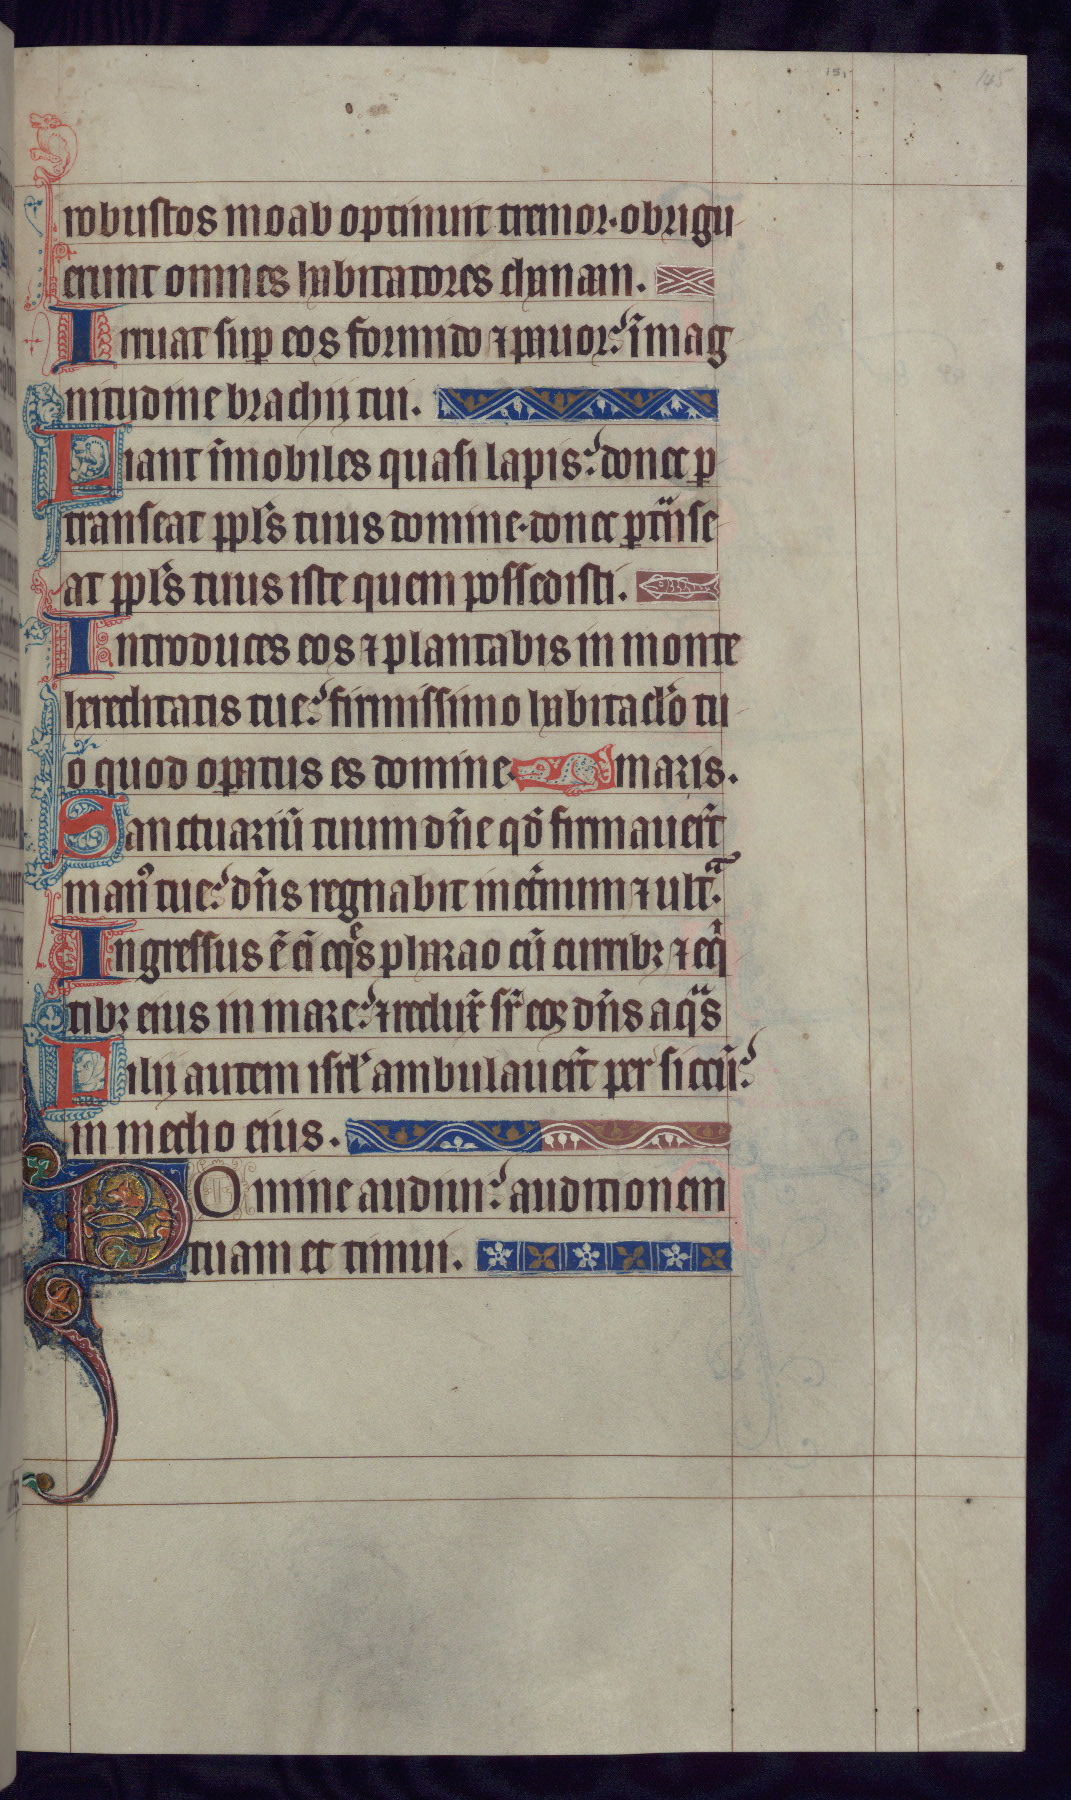 145
151
robustos moab optinuit tremor·obrigu
erunt omnes habitatores chanaan.
Irruat sup̱ eos formido ⁊ pauor: ī mag
nitudine brachij tui.
Fiant īmobiles quasi lapis: donec p̱
transeat pp̄ls tuus domine·donec p̱tͣnse
at pp̄ls tuus iste quem possedisti.
Introduces eos ⁊ plantabis in monte
hereditatis tue: firmissimo habitac̄lo tu
o quod op̱atus es domine.
maris.
Sanctuariū tuum dn̄e qd̄ firmauer̄t
man᷒ tue: dn̄s regnabit in et̄num ⁊ ultͣ.
Ingressus ē ei eqͤs pharao cū curribꝫ ⁊ eqͥ
tibꝫ eius in mare: ⁊ redux̄ sr̄ eoꝝ dn̄s aqͣs
Filij autem isrl̄ ambulauer̄t per siccū:
in medio eius.
Domine audiui: auditionem
tuam et timui.